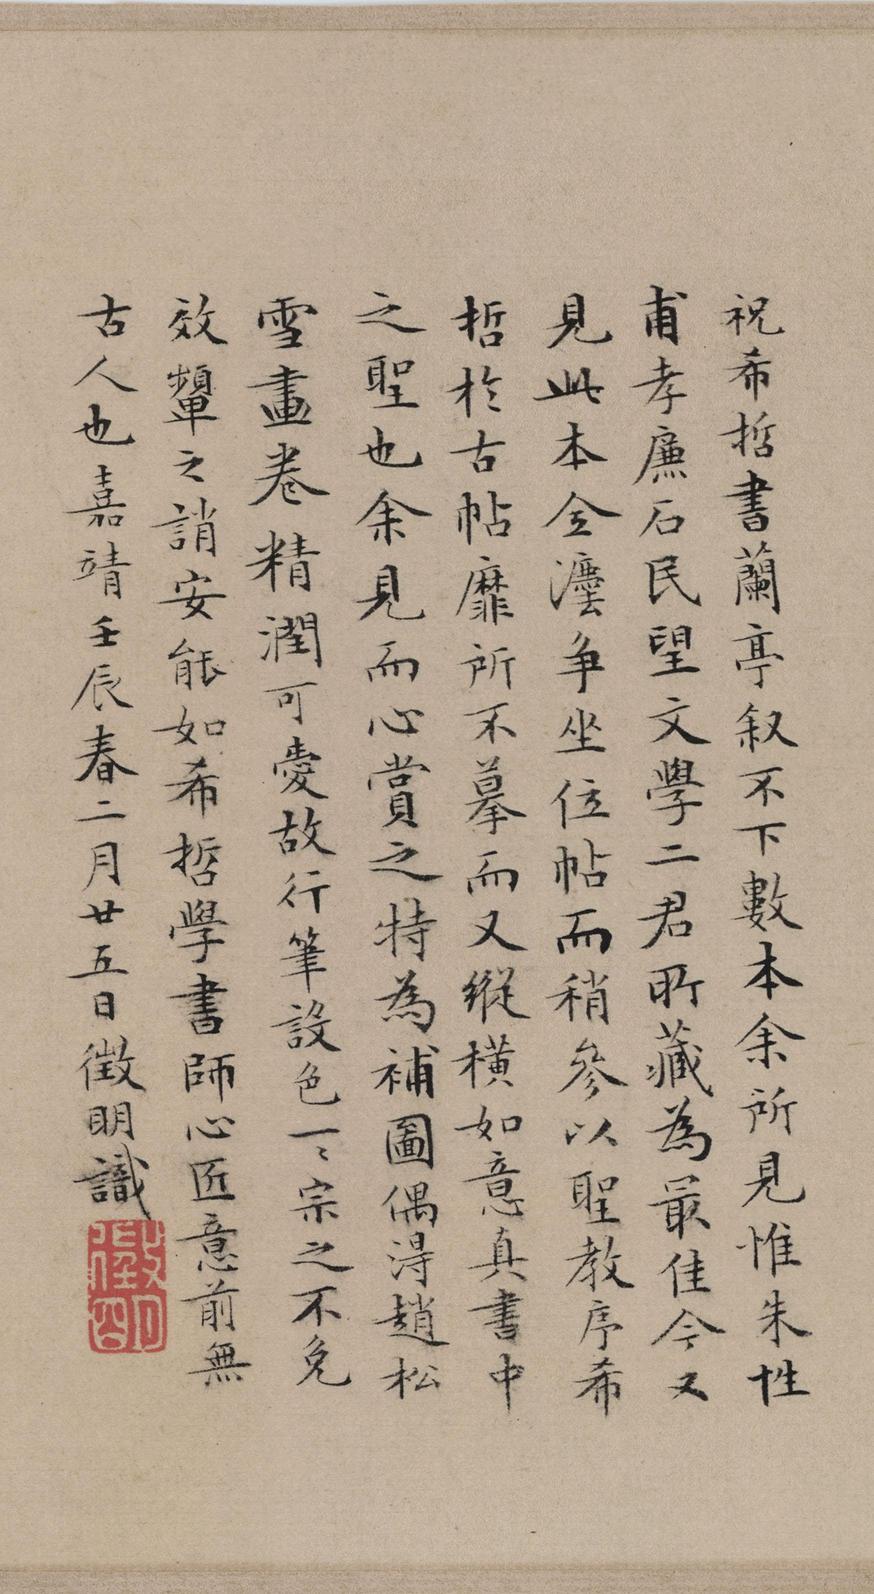 祝希哲書蘭亭叙不下數本余所見惟朱性
甫孝廉石民望文學二君所藏為最佳今又
見此本全灋争坐位帖而稍參以聖教序希
哲於古帖靡所不摹而又縱橫如意真書中
之聖也余見而心賞之特為補圖偶得趙松
雪畫卷精潤可愛故行筆設色一〻宗之不免
效顰之誚安能如希哲學書師心匠意前無
古人也嘉靖壬辰春二月廿五日徵明識
徵明